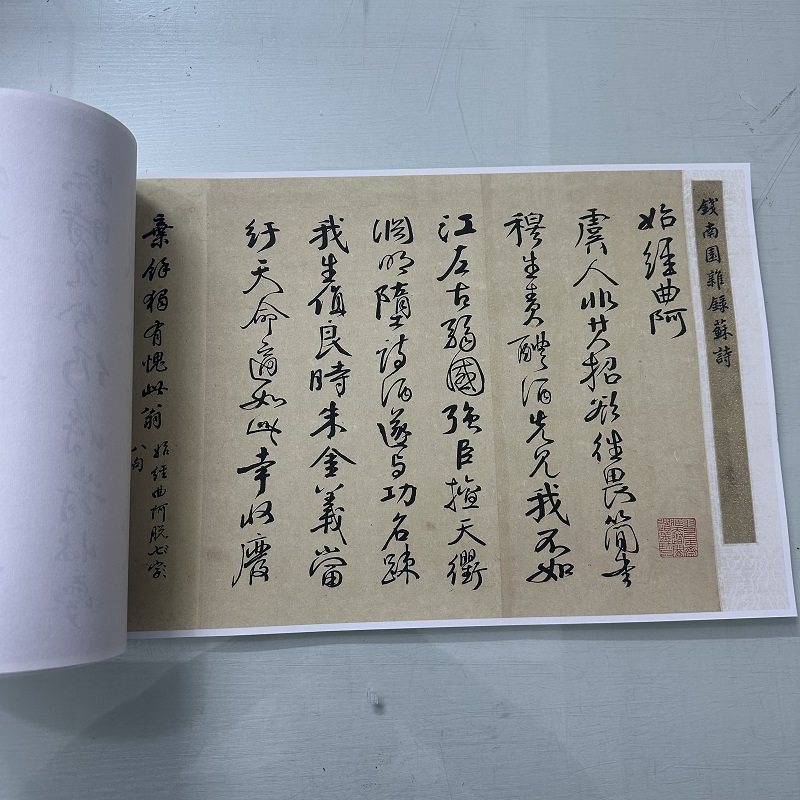 錢南園雜錄蘇詩
始經曲阿
虞人非其招欲往畏簡書
穆生責醴酒先見我不如
江左古弱國強臣擅天衢
淵明墮詩酒遂與功名疎
我生值良時朱金義當
紆天命適如此幸收廢
棄餘獨有愧此翁
始經曲阿脫七字
八句